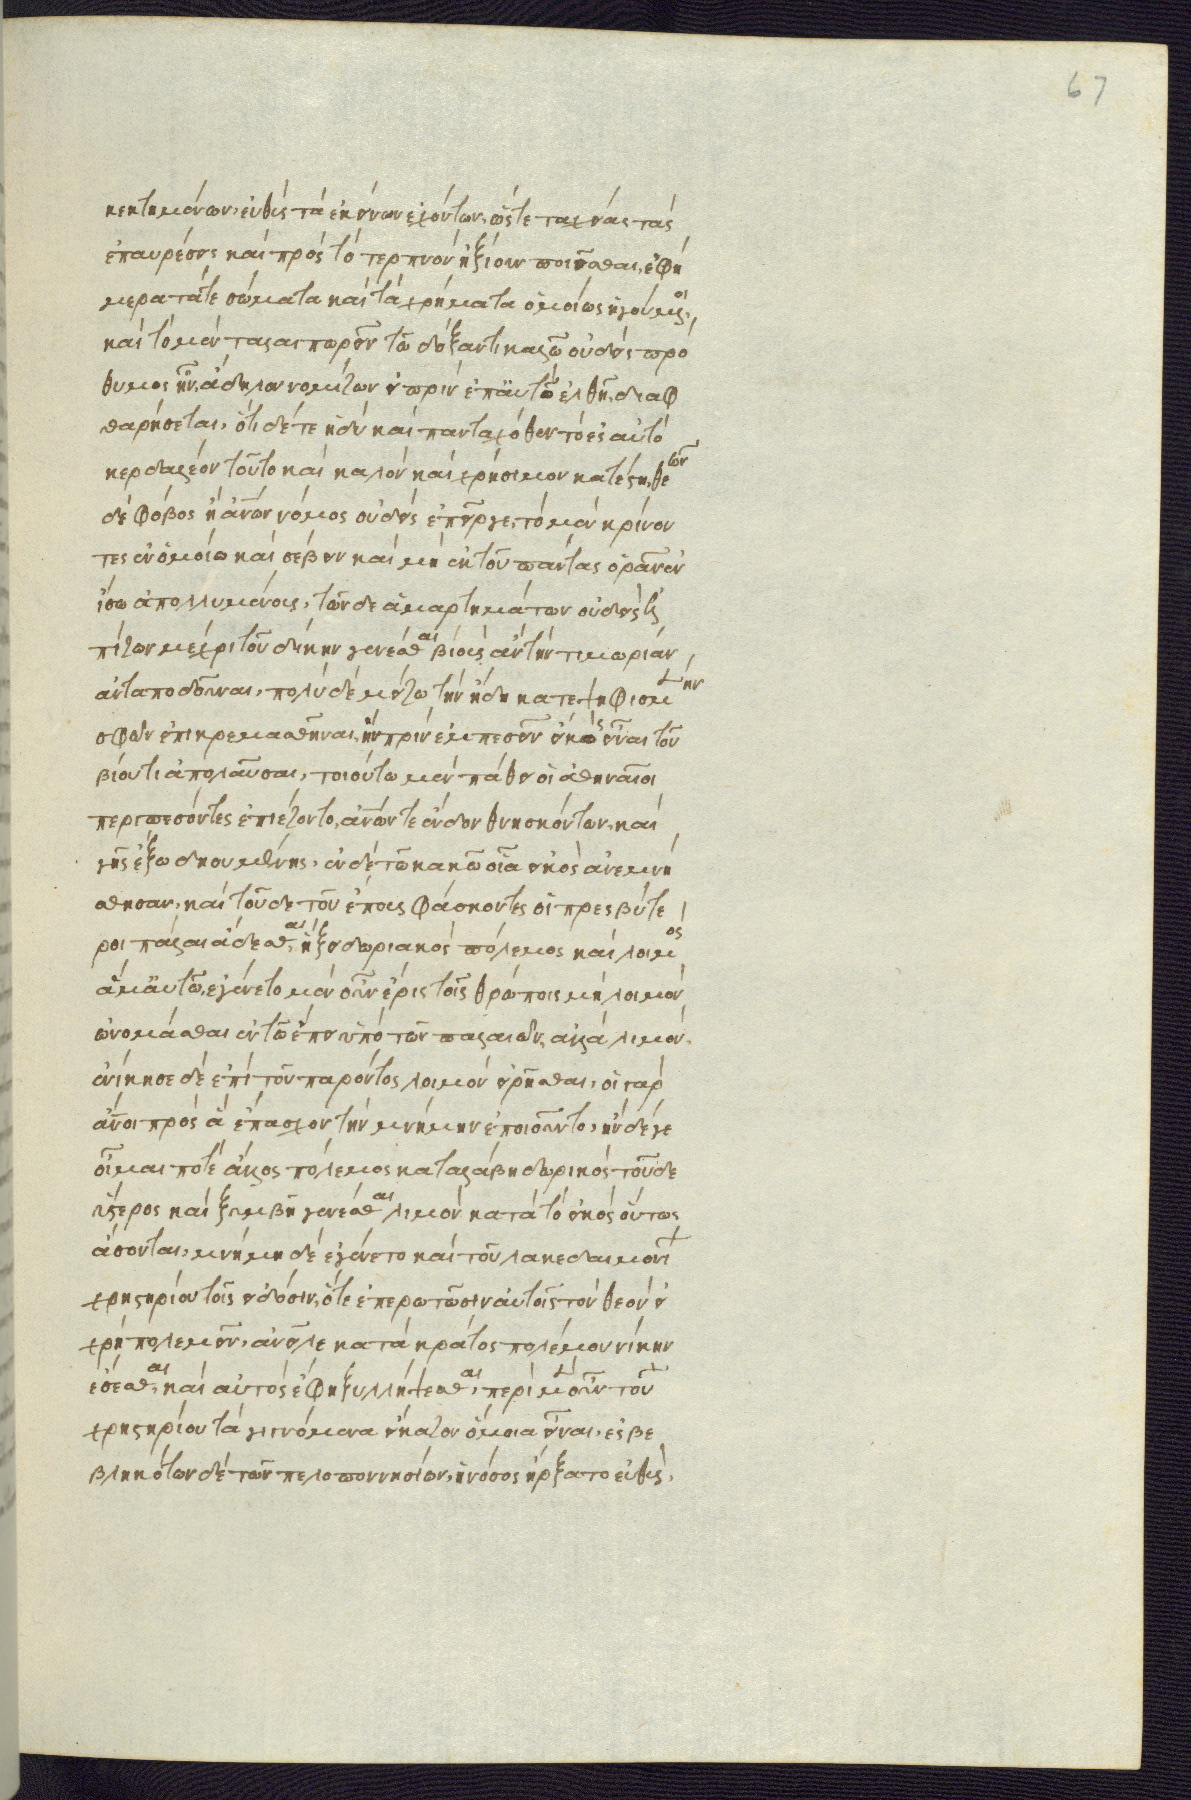 67
κεκτημένων, εὐθὺς τὰ ἐκείνων ἐχόντων, ὥστε ταχείας τὰς
ἐπαυρέσεις καὶ πρὸς τὸ τερπνὸν ἠξίουν ποιεῖσθαι, ἐφή
μερα τάτε σώματα καὶ τὰ χρήματα ὁμοίως ἡγούμ̅οι,
καὶ τὸ μὲν ταλαιπωρεῖν τῶ δόξαντι καλῶ οὐδεὶς πρό
θυμος ἦν, ἄδηλον νομίζων εἰ πρὶν ἐπ᾽ αὐτὸ ἐλθεῖν, διαφ
θαρήσεται, ὅτι δέ τε ἡδὺ καὶ πανταχόθεν τὸ ἐς αὐτὸ
κερδαλέον τοῦτο καὶ καλὸν καὶ χρήσιμον κατέστη, θεῶν
δὲ φόβος ἢ ἀν̅ων νόμος οὐδεὶς ἐπεῖργε, τὸ μὲν κρίνον
τες ἐν ὁμοίω καὶ σέβειν καὶ μὴ ἐκ τοῦ πάντας ὁρᾶν ἐν
ἴσω ἀπολλυμένους, τῶν δὲ ἁμαρτημάτων οὐδεὶς ἐλ
πίζων μέχρι τοῦ δίκην γενέσθαι βιοὺς ἂν τὴν τιμωρίαν
ἀνταποδοῦναι, πολὺ δὲ μείζω τὴν ἤδη κατεψηφισμ̅ην
σφῶν ἐπικρεμασθῆναι, ἣν πρὶν ἐμπεσεῖν εἰκὸς εἶναι τοῦ
βίου τι ἀπολαῦσαι, τοιούτω μὲν πάθει οἱ ἀθηναῖοι
περιπεσόντες ἐπιέζοντο, ἀν̅ων τε ἔνδον θνησκόντων, καὶ
γῆς ἔξω δηουμένης, ἐν δὲ τῶ κακῶ οἷα εἰκὸς ἀνεμνή
σθησαν, καὶ τοῦδε τοῦ ἔπους φάσκοντες οἱ πρεσβύτε
ροι πάλαι ἄδεσθαι, ἥξει δωριακὸς πόλεμος καὶ λοιμὸς
ἅμ᾽ αὐτῶ, ἐγένετο μὲν οὖν ἔρις τοῖς θρώποις μὴ λοιμὸν
ὠνομάσθαι ἐν τῶ ἔπει ὑπὸ τῶν παλαιῶν, ἀλλὰ λιμὸν,
ἐνίκησε δὲ ἐπὶ τοῦ παρόντος λοιμὸν εἰρῆσθαι, οἱ γὰρ
ἄν̅οι πρὸς ἃ ἔπασχον τὴν μνήμην ἐποιοῦντο, ἢν δέ γε
οἶμαι ποτὲ ἄλλος πόλεμος καταλάβη δωρικὸς τοῦδε
ὕστερος καὶ ξυμβῆ γενέσθαι λιμὸν κατὰ τὸ εἰκὸς οὕτως
ἄσονται, μνήμη δὲ ἐγένετο καὶ τοῦ λακεδαιμονί
χρηστηρίου τοῖς εἰδόσιν, ὅτε ἐπερωτῶσιν αὐτοῖς τὸν θεὸν εἰ
χρὴ πολεμεῖν, ἀνεῖλε κατὰ κράτος πολέμου νίκην
ἔσεσθαι, καὶ αὐτὸς ἔφη ξυλλήψεσθαι, περὶ μ̅ οὖν τοῦ
χρηστηρίου τὰ γιγνόμενα εἴκαζον ὅμοια εἶναι, ἐσβε
βληκότων δὲ τῶν πελοποννησίων, ἡ νόσος ἤρξατο εὐθὺς,